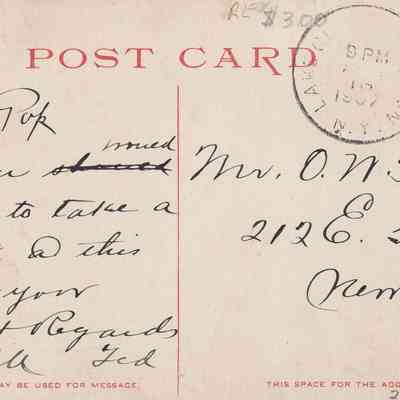 $3.00
POST CARD
9 PM
1907
N.Y.
Pop
would
should
to take a
@ this
your
Regards
Ted
Mr. O. W.
212 E.
New
AY BE USED FOR MESSAGE.
THIS SPACE FOR THE ADD